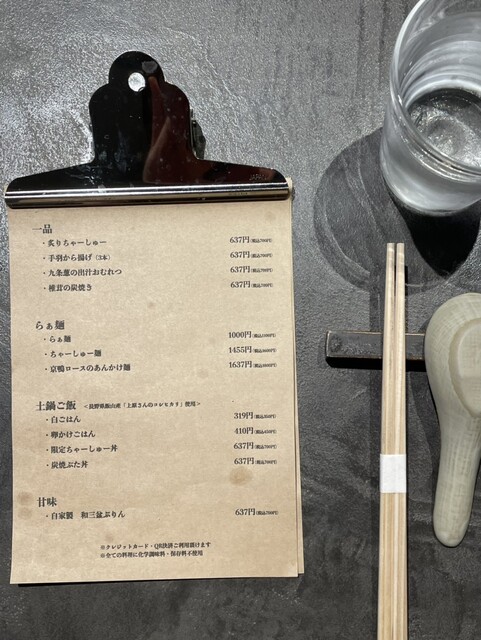 一品
・炙りちゃーしゅー 637円(税込700円)
・手羽から揚げ(3本) 637円(税込700円)
・九条葱の出汁おむれつ 637円(税込700円)
・椎茸の炭焼き 637円(税込700円)
らぁ麺
・らぁ麺 1000円(税込1100円)
・ちゃーしゅー麺 1455円(税込1600円)
・京鴨ロースのあんかけ麺 1637円(税込1800円)
土鍋ご飯 <長野県飯山産「上原さんのコシヒカリ」使用>
・白ごはん 319円(税込350円)
・卵かけごはん 410円(税込450円)
・限定ちゃーしゅー丼 637円(税込700円)
・炭焼ぶた丼 637円(税込700円)
甘味
・自家製 和三盆ぷりん 637円(税込700円)
※クレジットカード・QR決済ご利用頂けます
※全ての料理に化学調味料・保存料不使用